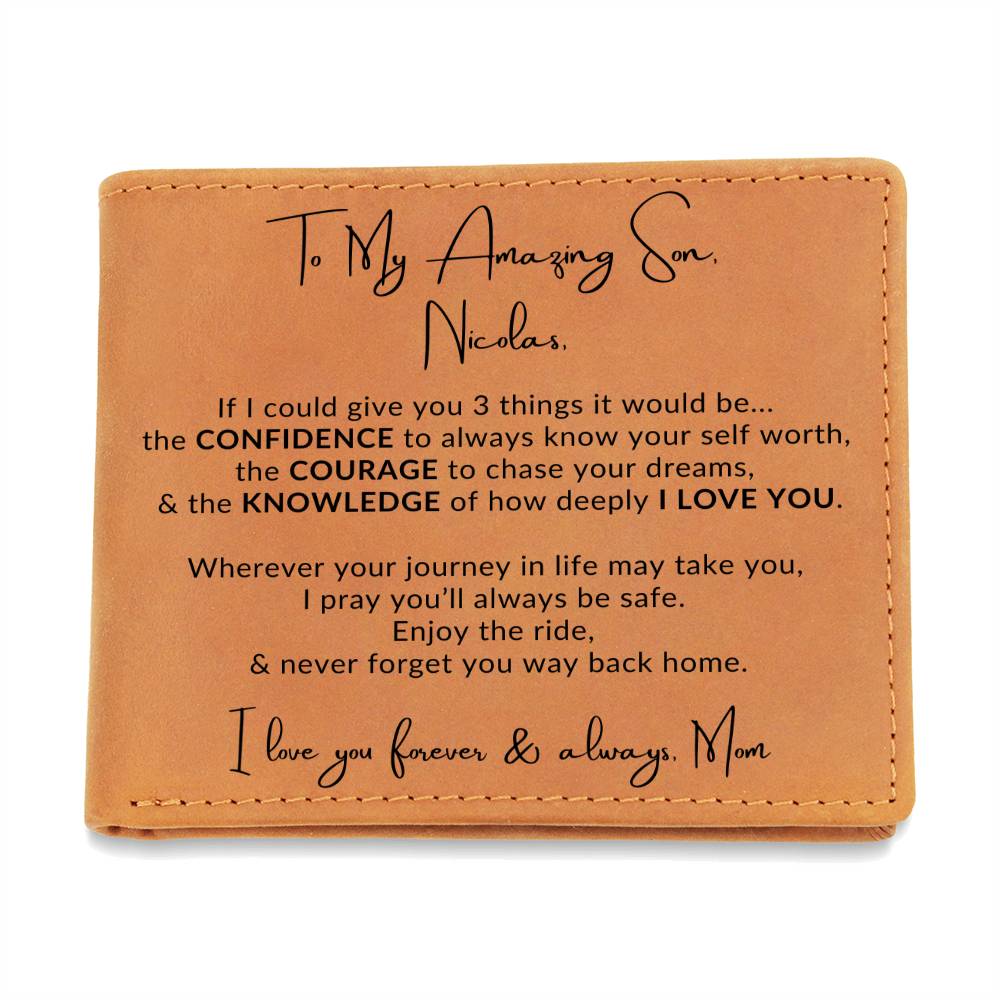 To My Amazing Son,
Nicolas,
If I could give you 3 things it would be...
the CONFIDENCE to always know your self worth,
the COURAGE to chase your dreams,
& the KNOWLEDGE of how deeply I LOVE YOU.
Wherever your journey in life may take you,
I pray you’ll always be safe.
Enjoy the ride,
& never forget you way back home.
I love you forever & always, Mom